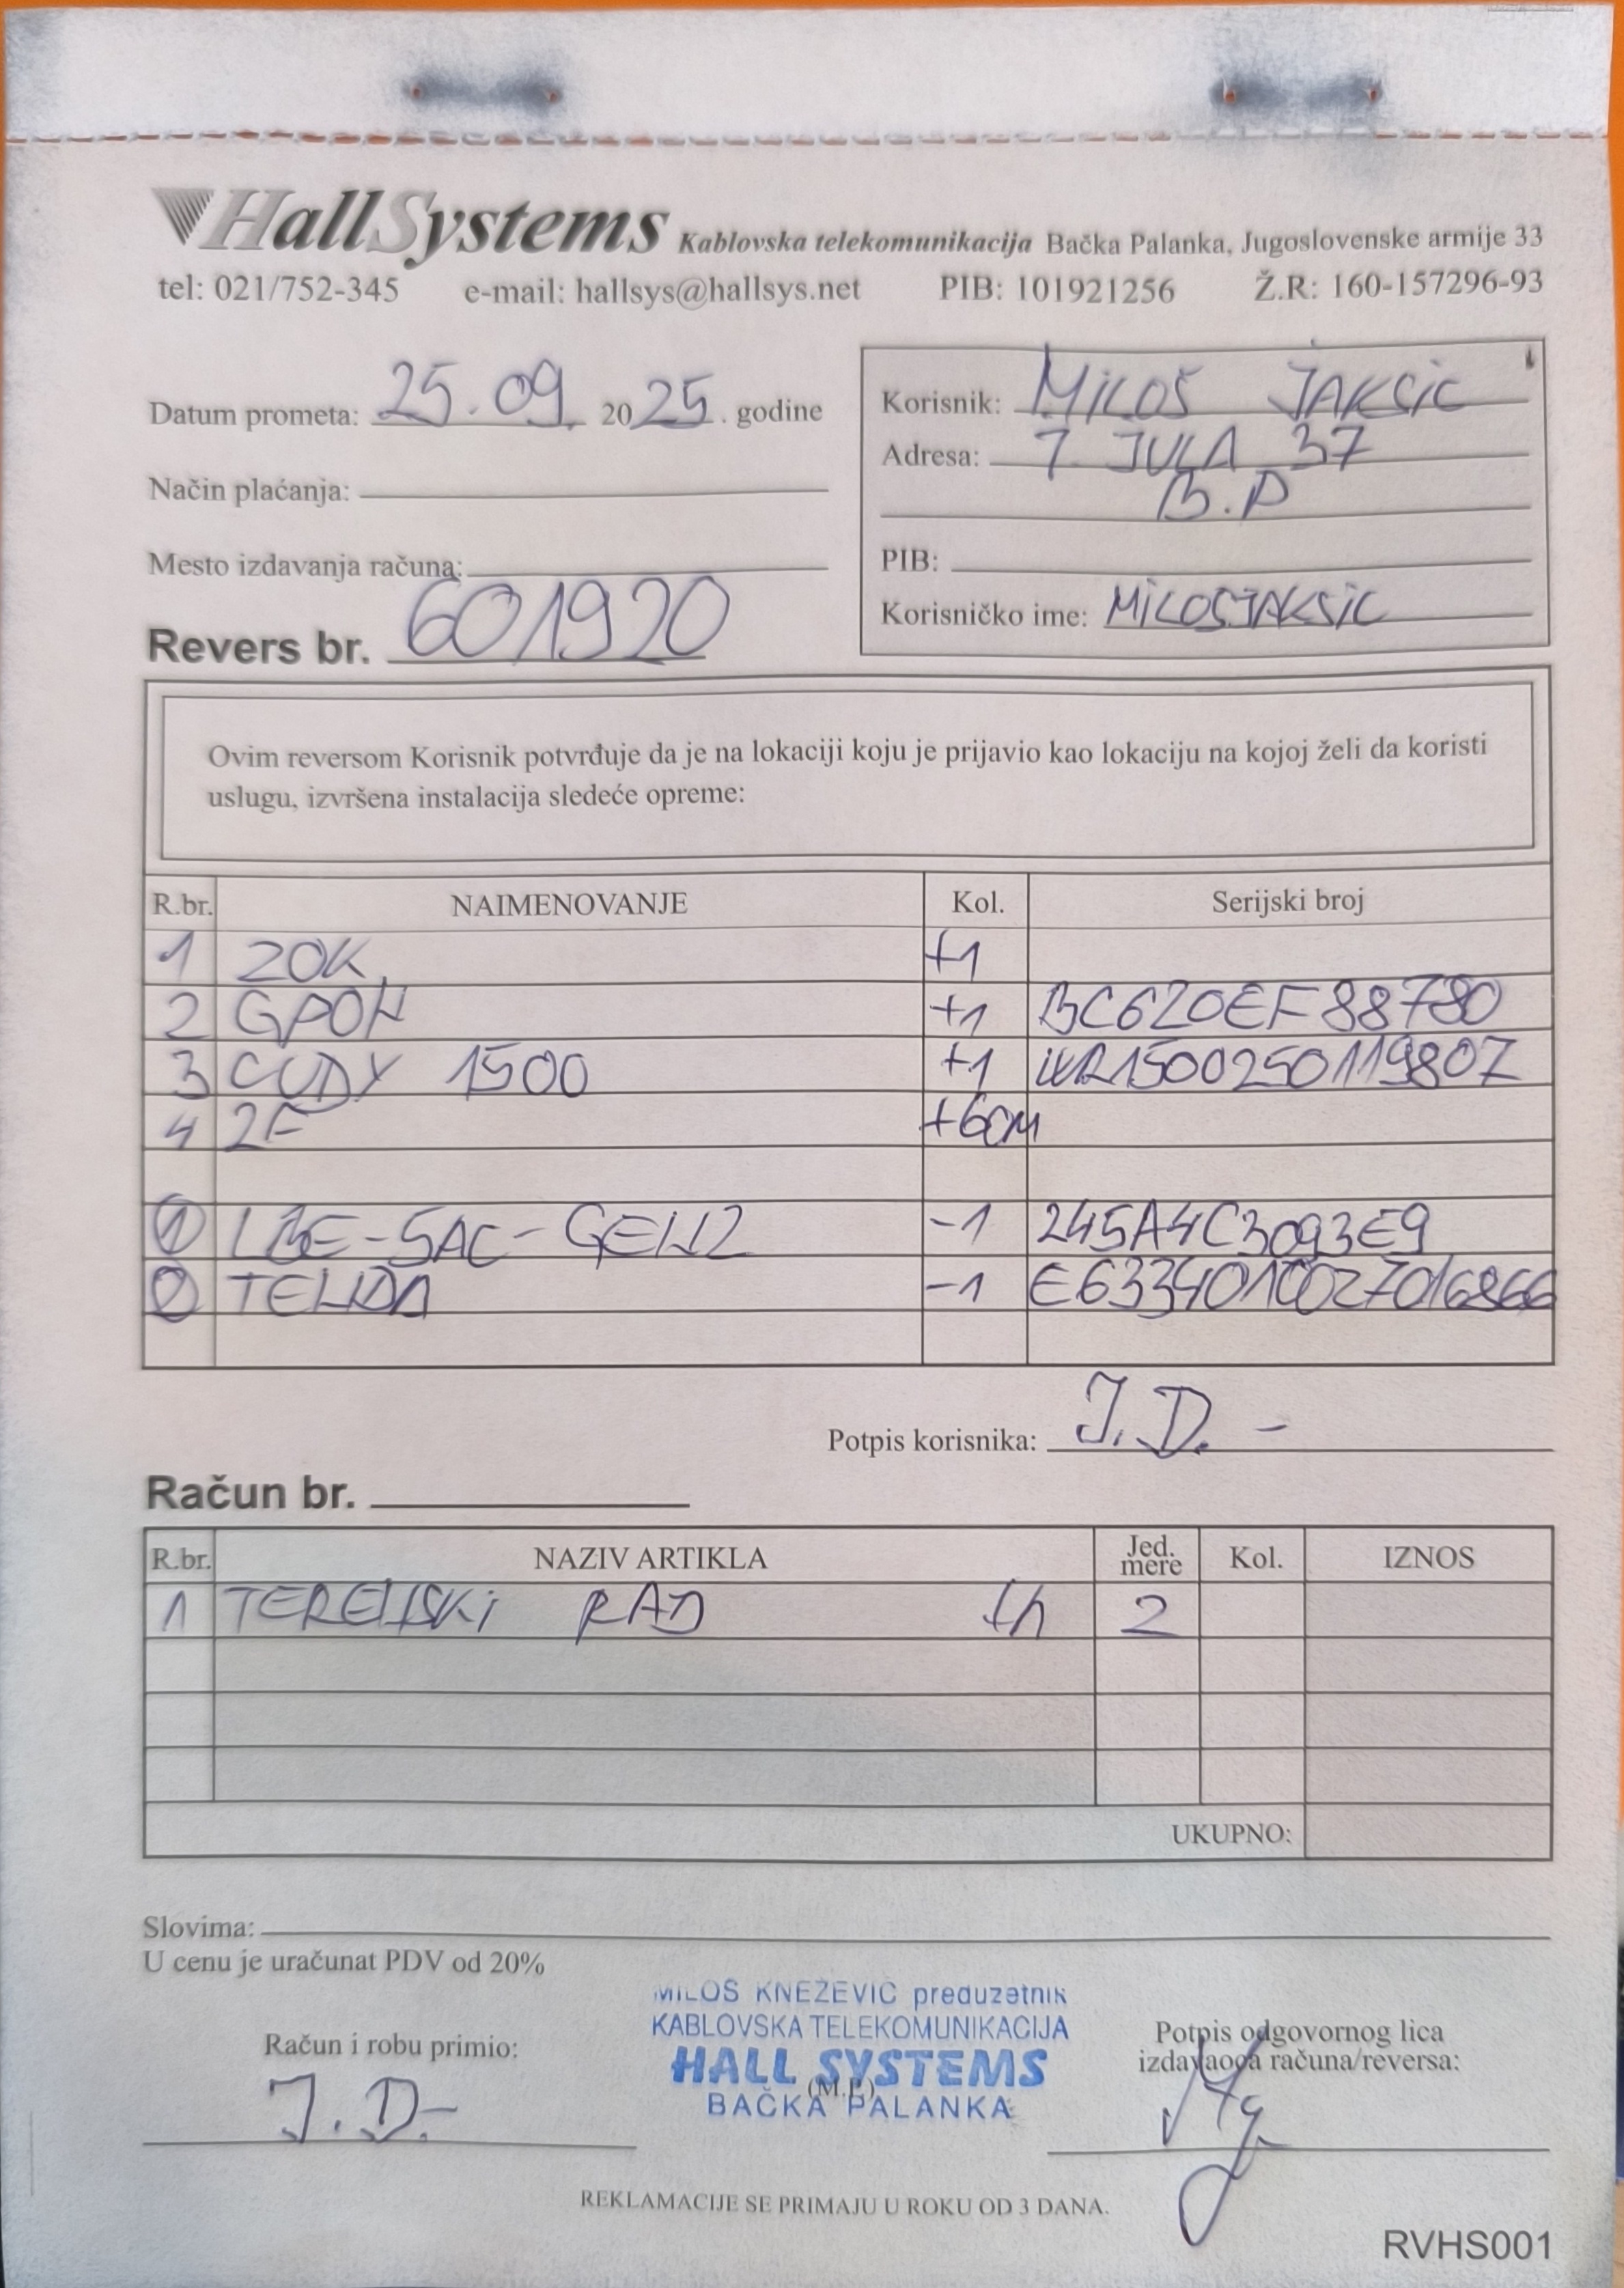 HallSystems Kablovska telekomunikacija Bačka Palanka, Jugoslovenske armije 33
tel: 021/752-345 e-mail: hallsys@hallsys.net PIB: 101921256 Ž.R: 160-157296-93
Datum prometa: 25.09. 2025. godine
Način plaćanja:
Mesto izdavanja računa:
Revers br. 601920
Korisnik: MILOŠ JAKSIC
Adresa: 7. JULA 37
B.P
PIB:
Korisničko ime: MILOSJAKSIC
Ovim reversom Korisnik potvrđuje da je na lokaciji koju je prijavio kao lokaciju na kojoj želi da koristi
uslugu, izvršena instalacija sledeće opreme:
R.br. NAIMENOVANJE Kol. Serijski broj
1 ZOK +1
2 GPON +1 BC620EF88780
3 CUDY 1500 +1 WR1500250119807
4 2F +60M
1 LBE-5AC-GEN2 -1 245A4C3093E9
2 TENDA -1
Potpis korisnika: J.D. -
Račun br.
R.br. NAZIV ARTIKLA Jed. mere Kol. IZNOS
1 TERENSKI RAD 2
UKUPNO:
Slovima:
U cenu je uračunat PDV od 20%
MILOŠ KNEŽEVIĆ preduzetnik
KABLOVSKA TELEKOMUNIKACIJA
HALL SYSTEMS
(M.P.)
BAČKA PALANKA
Račun i robu primio:
J.D-
Potpis odgovornog lica
izdavaoca računa/reversa:
REKLAMACIJE SE PRIMAJU U ROKU OD 3 DANA.
RVHS001